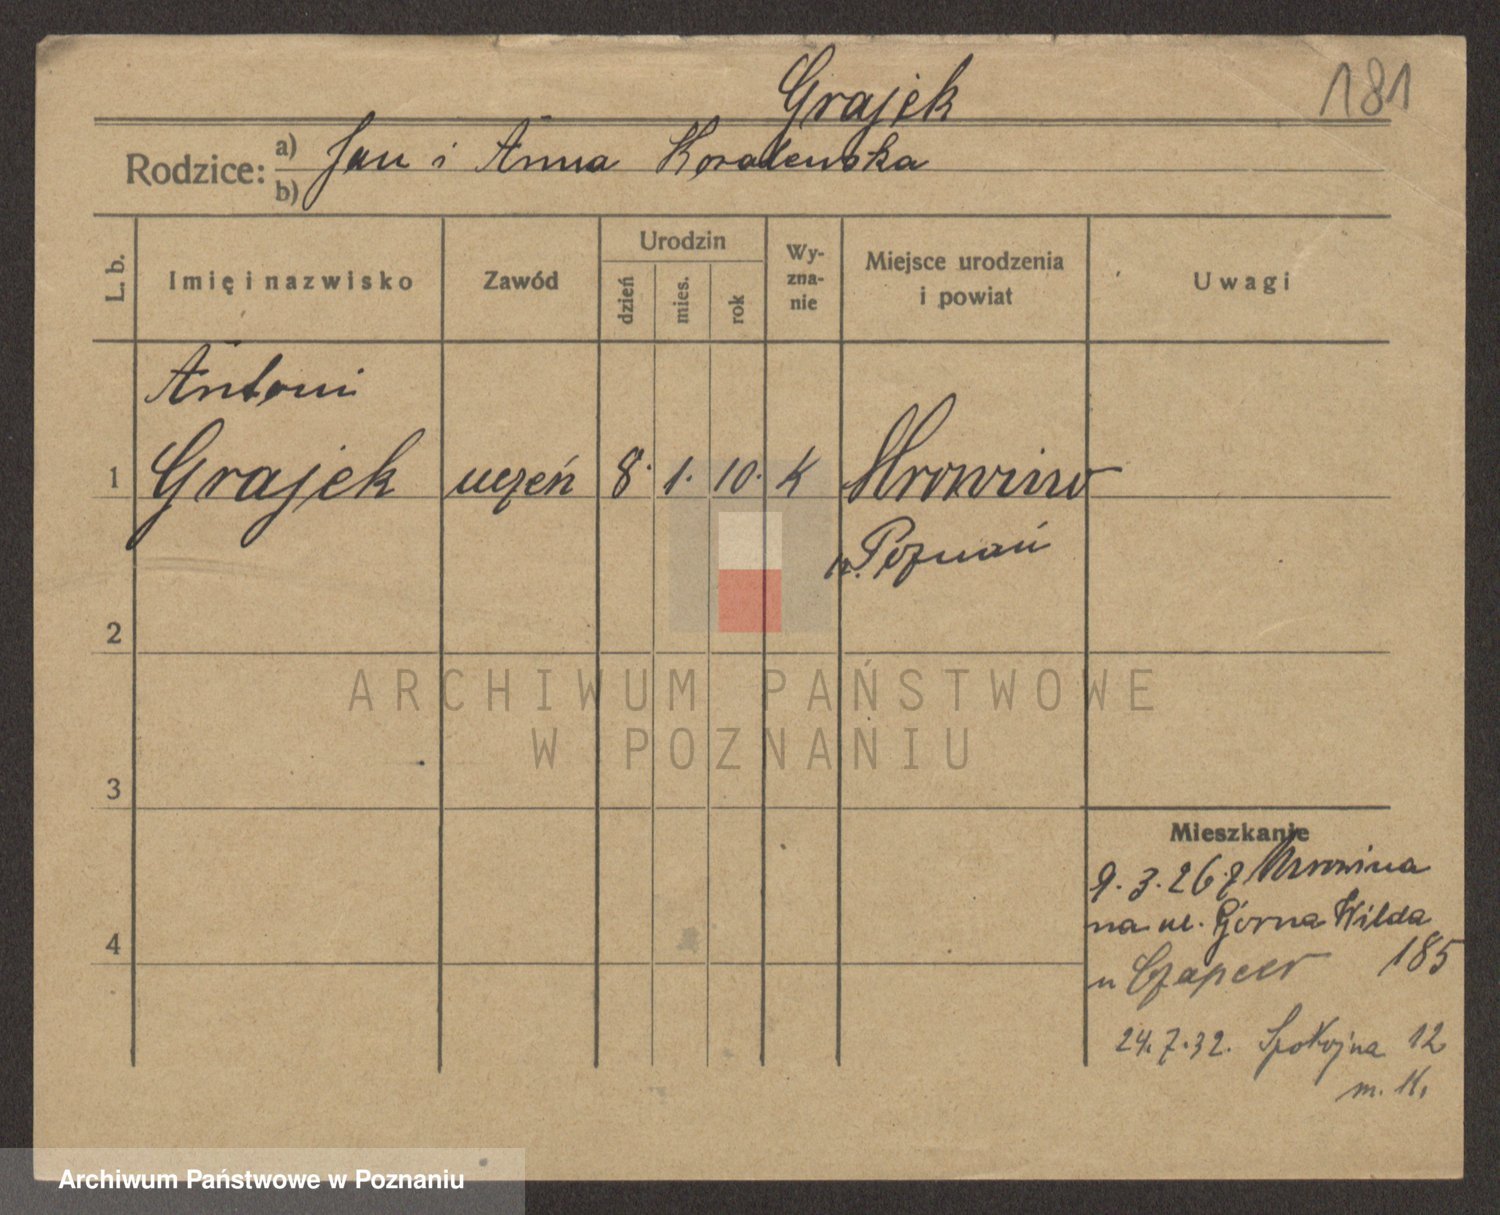 Grajek
181
Rodzice: a) Jan i Anna
b)
L. b.
Imię i nazwisko
Zawód
Urodzin
dzień
mies.
rok
Wy-
zna-
nie
Miejsce urodzenia
i powiat
Uwagi
Antoni
1 Grajek uczeń 8. 1. 10. K Mrowino
p. Poznań
2
ARCHIWUM PAŃSTWOWE
W POZNANIU
3
Mieszkanie
9.3.26 z Mrowina
na ul. Górna Wilda
4
u 185
24.7.32. Spokojna 12
m.
Archiwum Państwowe w Poznaniu